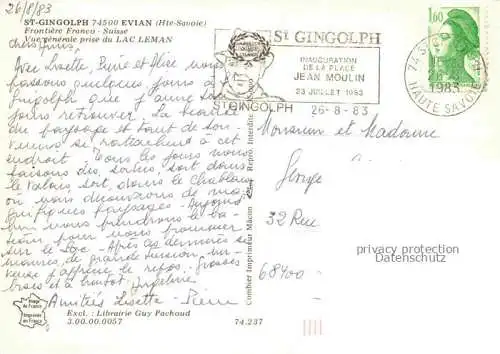 26/8/83
ST-GINGOLPH 74500 EVIAN (Hte-Savoie)
Frontière Franco - Suisse
Vue générale prise du LAC LEMAN
Chers Amis,
Avec Lisette, Pierre et nous
passons quelques jours à St
Gingolph que j'aime
jours retrouver. La beauté
du paysage et tant de sou-
venirs se rattachent à cet
endroit. Tous les jours nous
faisons des sorties, soit dans
le Valais, soit dans le Chablais
où nous découvrons de ma-
gnifiques paysages. Aujour-
d'hui nous prendrons le ba-
teau pour nous promener
sur le lac. Après ces dernières se-
maines, de grande tension ner-
veuse j'apprécie le repos. Grosses
bises et à bientôt.
Amitiés Lisette - Pierre
Image de France
Imprimée en France
Excl.: Librairie Guy Pachoud
3.00.00.0057
74.237
Combier Imprimeur Mâcon
Repro Interdite
St GINGOLPH
INAUGURATION
DE LA PLACE
JEAN MOULIN
23 JUILLET 1983
ST GINGOLPH
26-8-83
1,60
1983
HAUTE SAVOIE
Monsieur et Madame
32 Rue
68400
privacy protection
Datenschutz